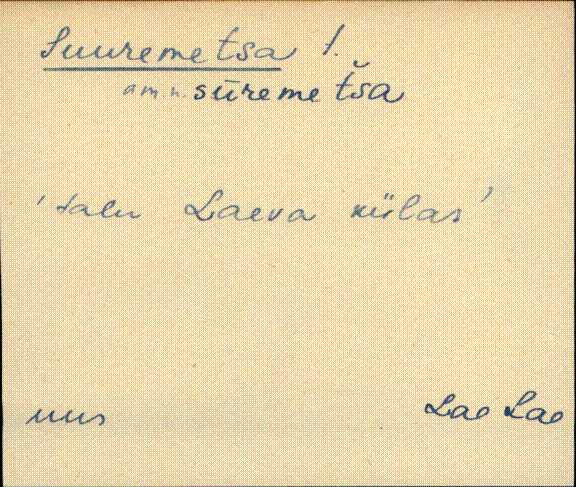 Suuremetsa t.
am.n. sūremeťša
'talu Laeva külas'
uus Lae Lae